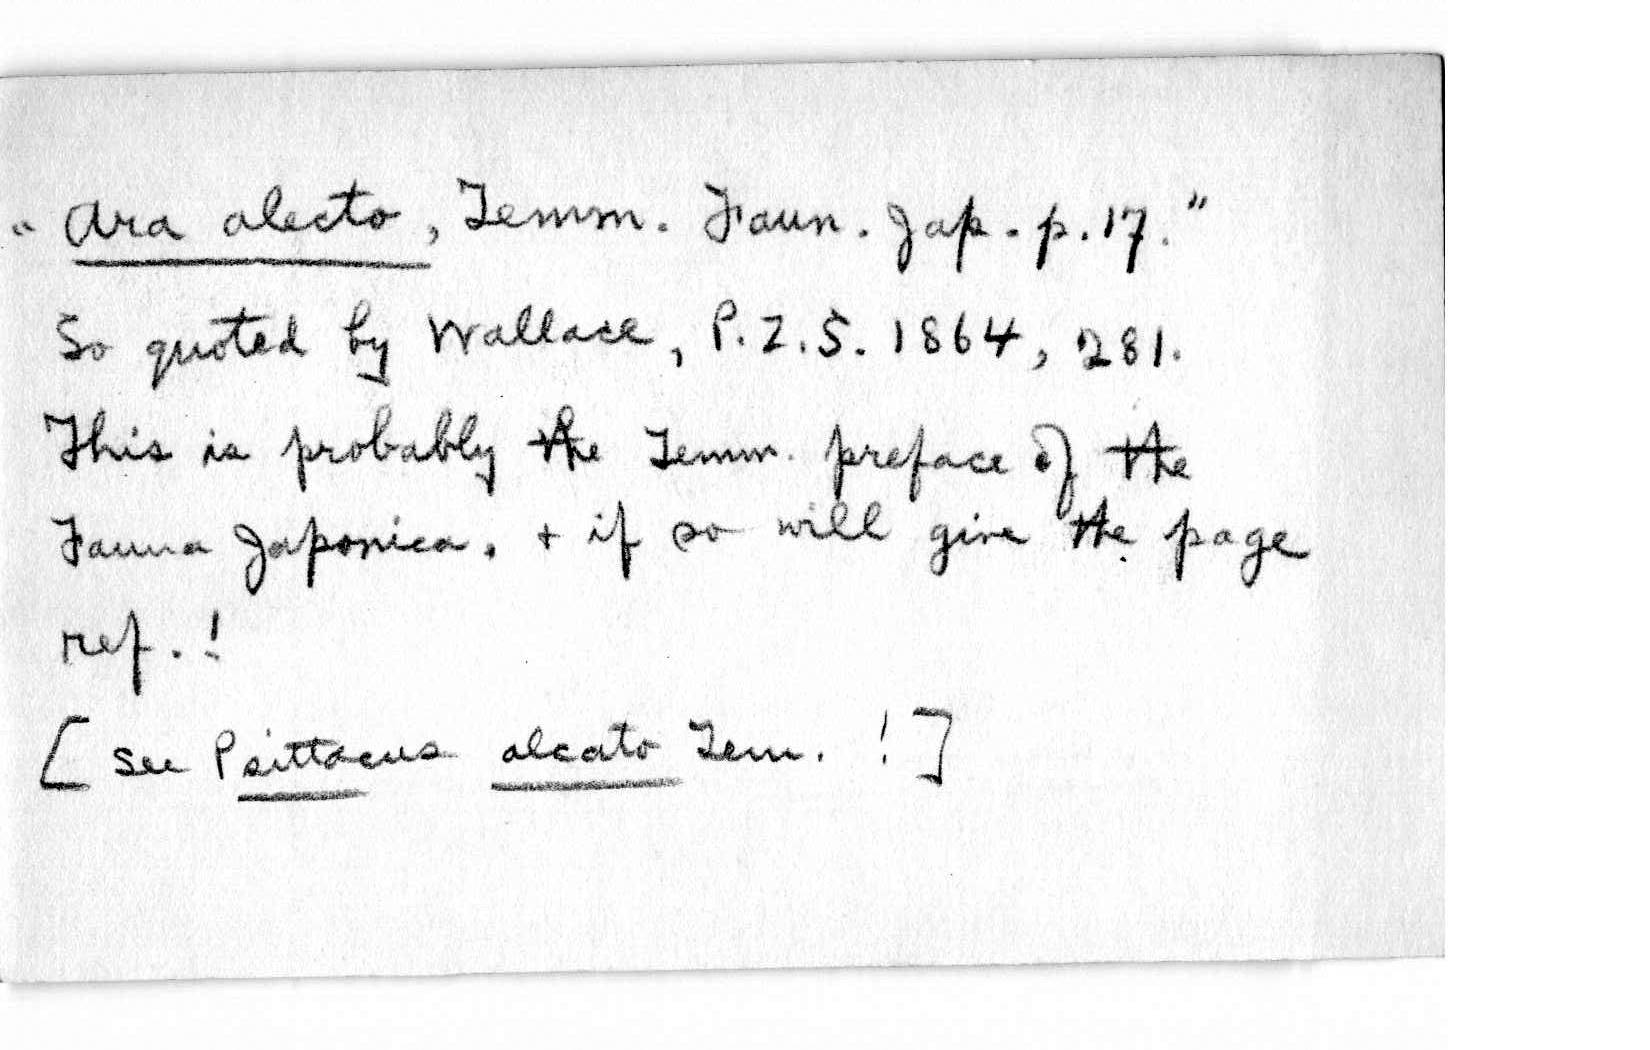 "Ara alecto, Temm. Faun. Jap. p. 17."
So quoted by Wallace, P.Z.S. 1864, 281.
This is probably the Temm. preface of the
Fauna Japonica. + if so will give the page
ref. !
[ see Psittacus alecato Tem. ! ]